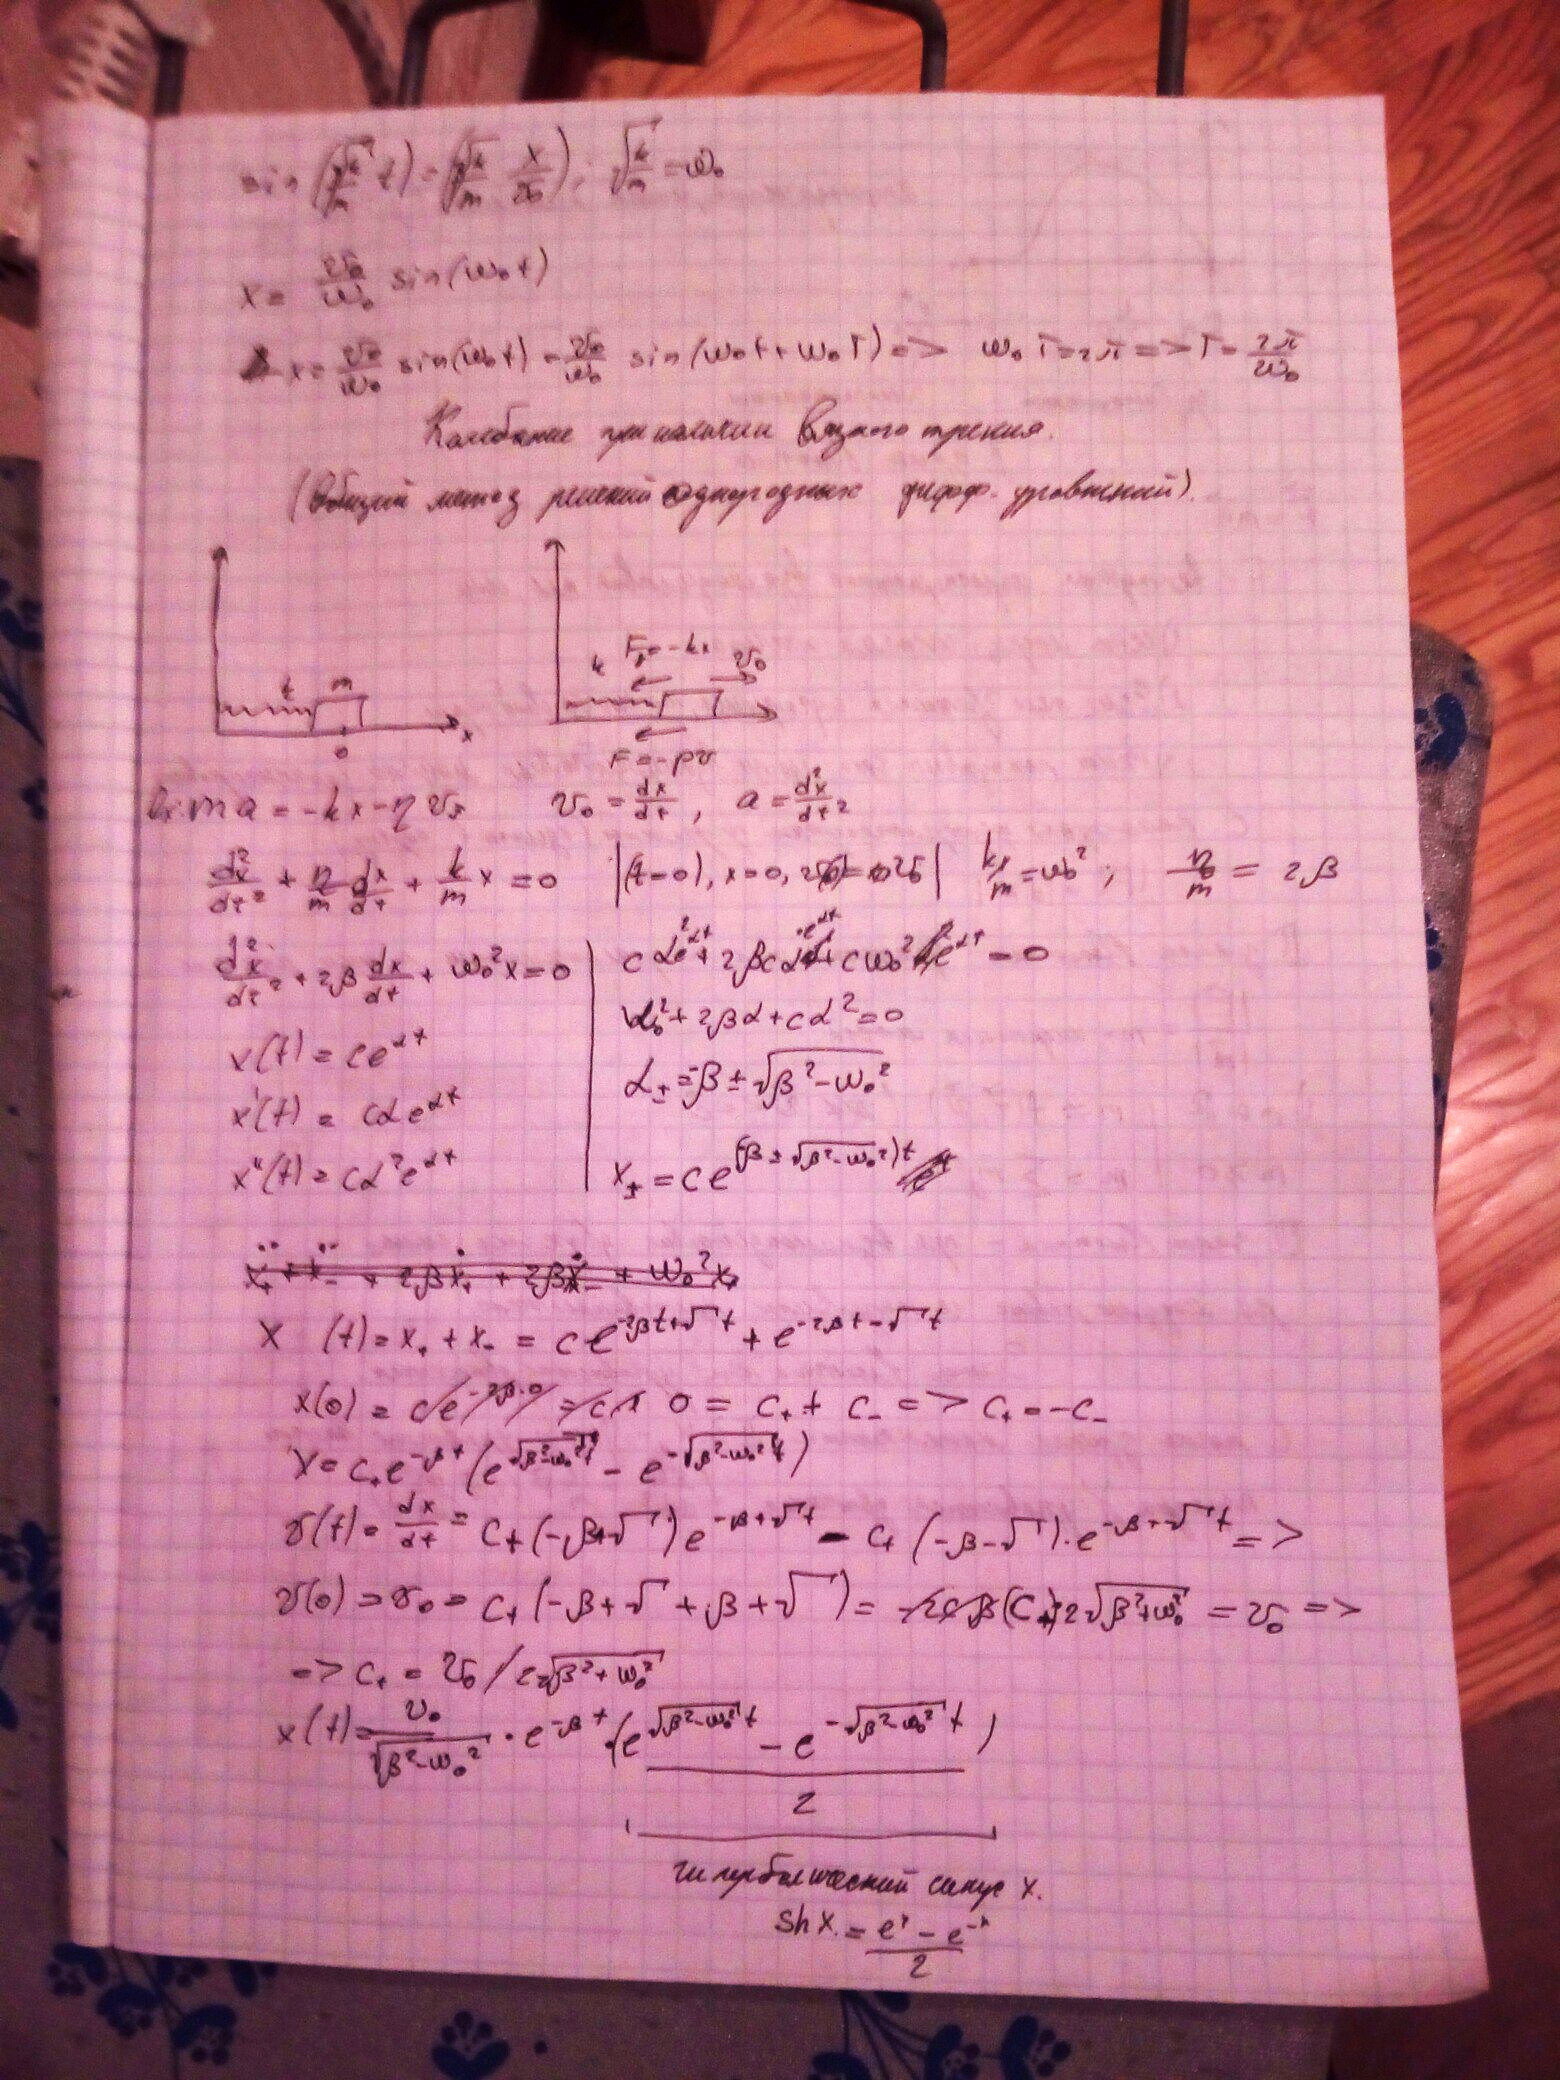 sin(√(k/m) t) = (√(k/m) x/v₀); √(k/m) = ω₀
x = v₀/ω₀ sin(ω₀t)
x = v₀/ω₀ sin(ω₀t) = v₀/ω₀ sin(ω₀t + ω₀T) => ω₀T = 2π => T = 2π/ω₀
Колебание при наличии вязкого трения.
(Общий метод решений однородных дифф. уравнений).
k m k F = -kx v₀
x 0 F = -ρv
ma = -kx - ηvₓ v₀ = dx/dt, a = d²x/dt²
d²x/dt² + η/m dx/dt + k/m x = 0 |(t=0), x=0, v(0) = v₀| k/m = ω₀²; η/m = 2β
d²x/dt² + 2β dx/dt + ω₀²x = 0
x(t) = ce^αt
x'(t) = cαe^αt
x''(t) = cα²e^αt
cα²e^αt + 2βcα·e^αt + cω₀²e^αt = 0
ω₀² + 2βα + cα² = 0
α± = -β ± √(β² - ω₀²)
x± = ce^(-β ± √(β² - ω₀²))t
ẍ₊ + ẍ₋ + 2βẋ₊ + 2βẋ₋ + ω₀²x₊
x (t) = x₊ + x₋ = ce^(-2βt+√ t) + e^(-2βt-√ t)
x(0) = ce^(-2β·0) = c 0 = c₊ + c₋ => c₊ = -c₋
x = c₊e^(-βt) (e^(√(β²-ω₀²)t) - e^(-√(β²-ω₀²)t))
v(t) = dx/dt = c₊(-β+√ )e^(-β+√ t) - c₊(-β-√ )·e^(-β-√ t) =>
v(0) = v₀ = c₊(-β+√ +β+√ ) = (c₊)2√(β²+ω₀²) = v₀ =>
=> c₊ = v₀/2√(β²+ω₀²)
x(t) = v₀/√(β²-ω₀²) · e^(-βt) · (e^(√(β²-ω₀²)t) - e^(-√(β²-ω₀²)t))
2
гиперболический синус x.
sh x = (e^x - e^-x)/2